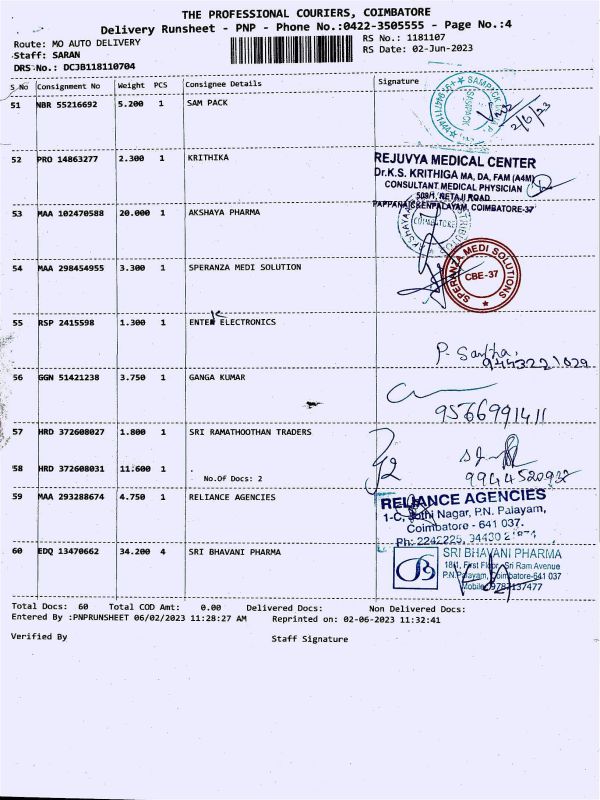 THE PROFESSIONAL COURIERS, COIMBATORE
Delivery Runsheet - PNP - Phone No.:0422-3505555 - Page No.:4
Route: MO AUTO DELIVERY RS No.: 1181107
Staff: SARAN RS Date: 02-Jun-2023
DRS No.: DCJB118110704
S No Consignment No Weight PCS Consignee Details Signature
51 NBR 55216692 5.200 1 SAM PACK
SAMPACK
2/6/23
52 PRO 14863277 2.300 1 KRITHIKA
REJUVYA MEDICAL CENTER
Dr.K.S. KRITHIGA MA, DA, FAM (A4M)
CONSULTANT MEDICAL PHYSICIAN
509/1, NETAJI ROAD
PAPPANAICKENPALAYAM, COIMBATORE-37
53 MAA 102470588 20.000 1 AKSHAYA PHARMA
COIMBATORE
54 MAA 298454955 3.300 1 SPERANZA MEDI SOLUTION
SPERANZA MEDI SOLUTIONS
CBE-37
55 RSP 2415598 1.300 1 ENTEK ELECTRONICS
9443221029
56 GGN 51421238 3.750 1 GANGA KUMAR
9566991411
57 HRD 372608027 1.800 1 SRI RAMATHOOTHAN TRADERS
58 HRD 372608031 11.600 1 .
No.Of Docs: 2
9944520932
59 MAA 293288674 4.750 1 RELIANCE AGENCIES
RELIANCE AGENCIES
1-C, Jothi Nagar, P.N. Palayam,
Coimbatore - 641 037.
Ph: 2242225, 94430
60 EDQ 13470662 34.200 4 SRI BHAVANI PHARMA
SRI BHAVANI PHARMA
18/1, First Floor, Sri Ram Avenue
P.N.Palayam, Coimbatore-641 037
Mobile: 9787137477
Total Docs: 60 Total COD Amt: 0.00 Delivered Docs: Non Delivered Docs:
Entered By :PNPRUNSHEET 06/02/2023 11:28:27 AM Reprinted on: 02-06-2023 11:32:41
Verified By Staff Signature